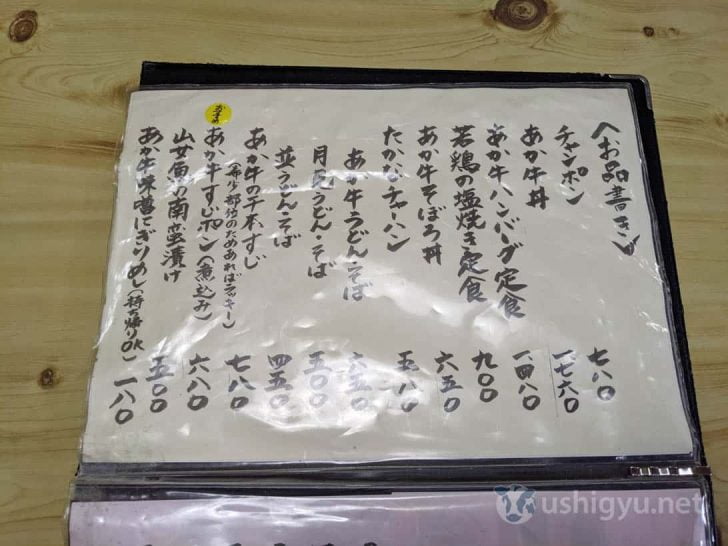 〈お品書き〉
チャンポン 七八〇
あか牛丼 一七六〇
あか牛ハンバーグ定食 一四八〇
若鶏の塩焼き定食 九〇〇
あか牛そぼろ丼 六五〇
たかなチャーハン 五八〇
あか牛うどん・そば 六五〇
月見うどん・そば 五〇〇
並うどん・そば 四五〇
あか牛の千本すじ 七八〇
(希少部位のためあればラッキー)
おすすめ
あか牛すじポン(煮込み) 六八〇
山女魚の南蛮漬け 五〇〇
あか牛味噌にぎりめし(持ち帰りOK) 一八〇
ushigyu.net